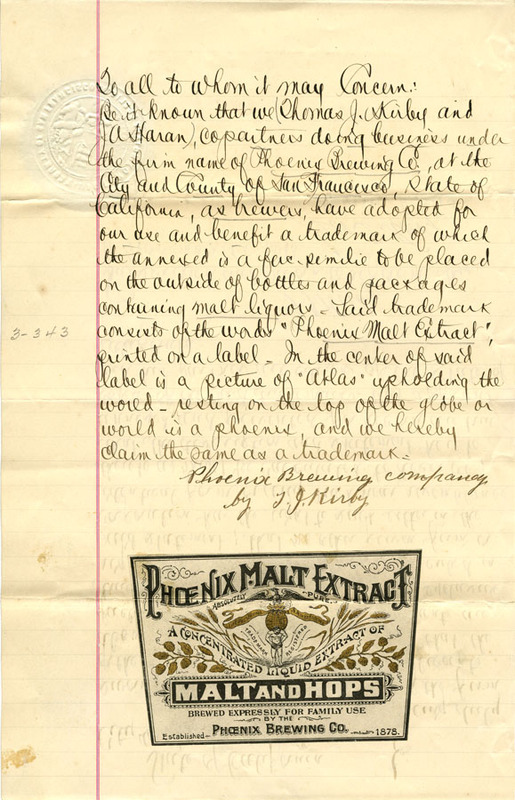 To all to whom it may Concern:
Be it known that we (Thomas J. Kirby and
J A Haran), copartners doing business under
the firm name of Phoenix Brewing Co, at the
City and County of San Francisco, State of
California, as brewers, have adopted for
our use and benefit a trademark of which
the annexed is a fac-simile to be placed
on the outside of bottles and packages
containing malt liquors - Said trademark
consists of the words "Phoenix Malt Extract",
printed on a label - In the center of said
label is a picture of "Atlas" upholding the
world - resting on the top of the globe or
world is a phoenix, and we hereby
claim the same as a trademark -
Phoenix Brewing company
by T. J. Kirby
3-343
PHŒNIX MALT EXTRACT
ABSOLUTELY PURE
TRADEMARK REGISTERED
A CONCENTRATED LIQUID EXTRACT OF
MALT AND HOPS
BREWED EXPRESSLY FOR FAMILY USE
BY THE
PHŒNIX BREWING CO.
Established 1878.